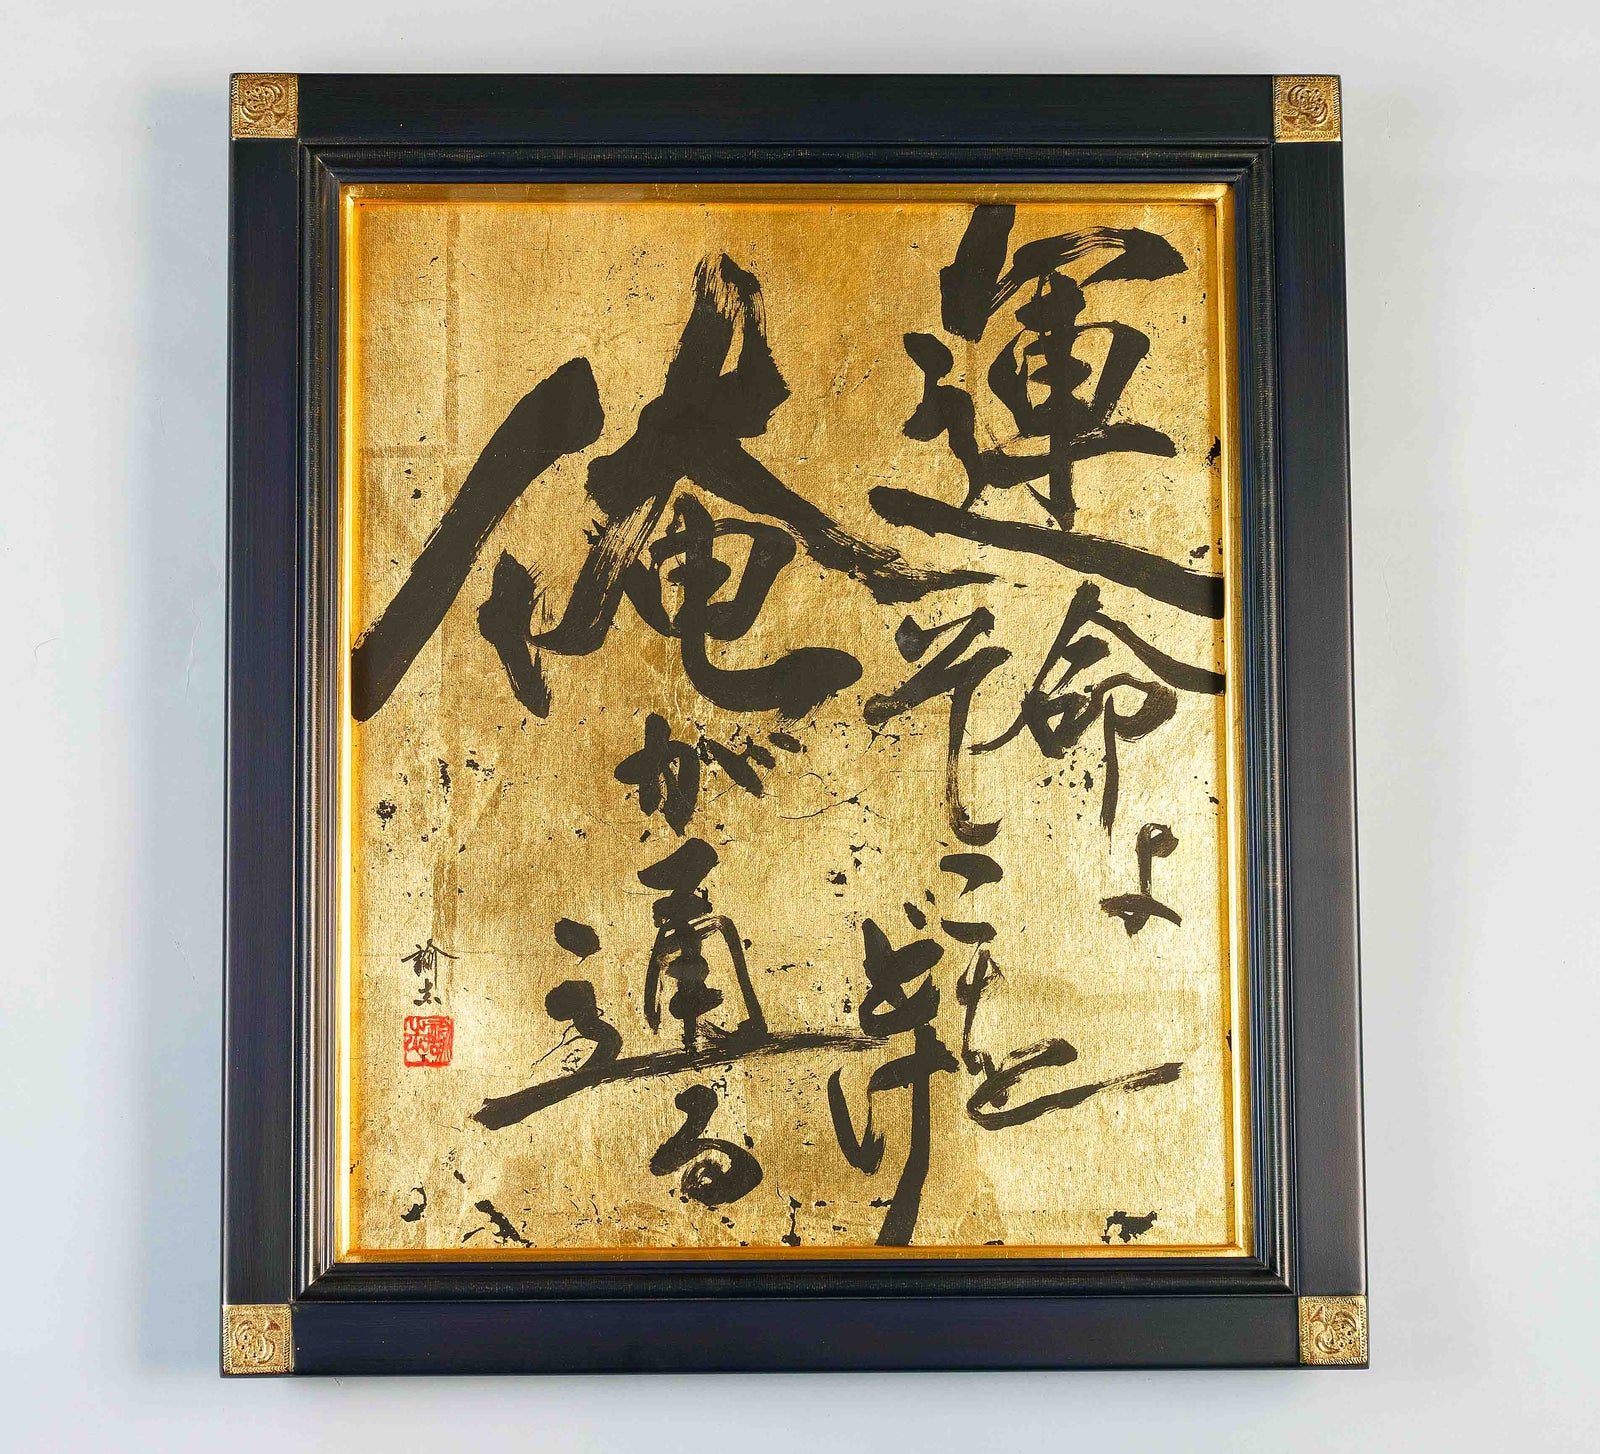 運命よ
そこをどけ
俺が通る
諭志